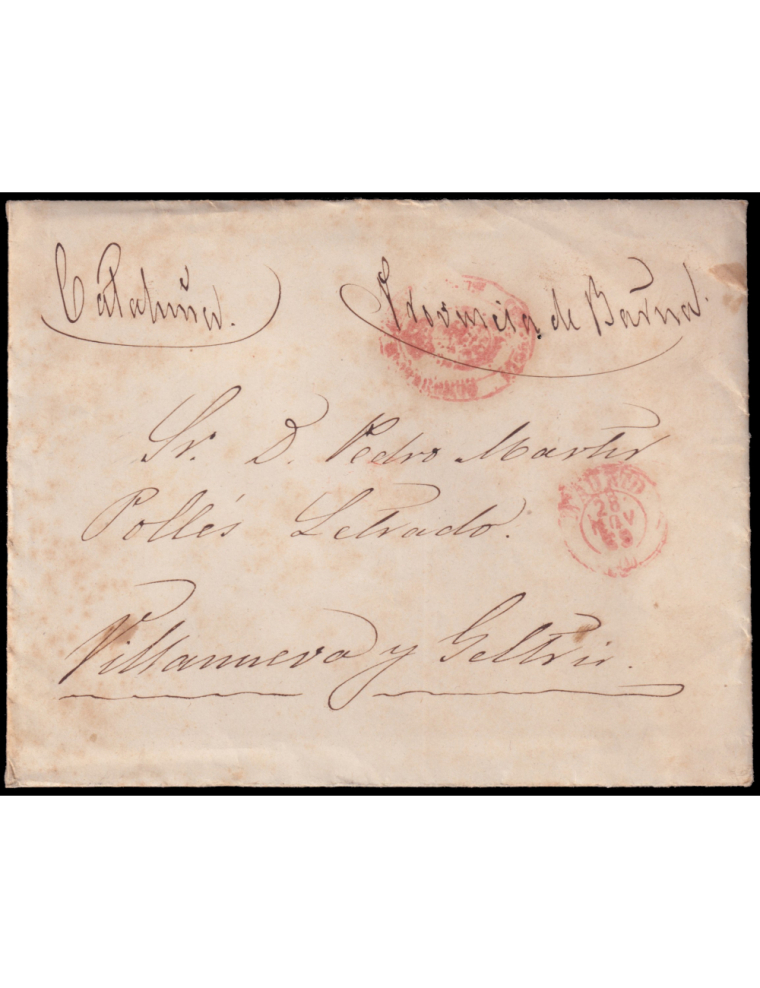 Cataluña. Provincia de Barna.
Sr. D. Pedro Martir
Pollés Letrado.
28
NOV
Villanueva y Geltrú.